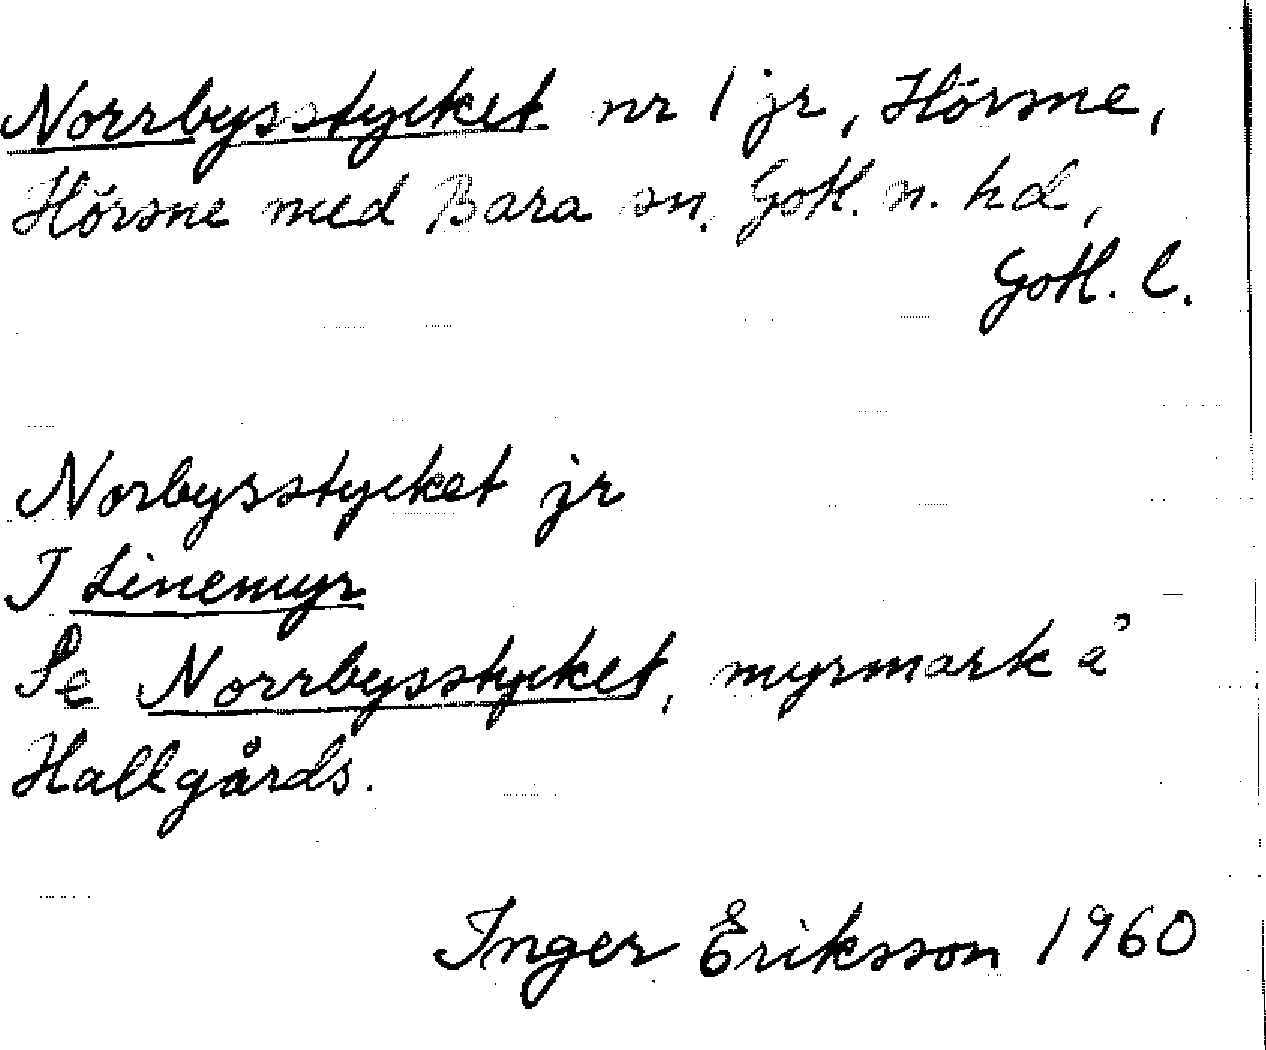 Norrbysstycket nr 1 jr, Hörsne,
Hörsne med Bara sn, Gotl. n. hd,
Gotl. l.
Norbysstycket jr
I Linemyr
Se Norrbysstycket, myrmark å
Hallgårds.
Inger Eriksson 1960